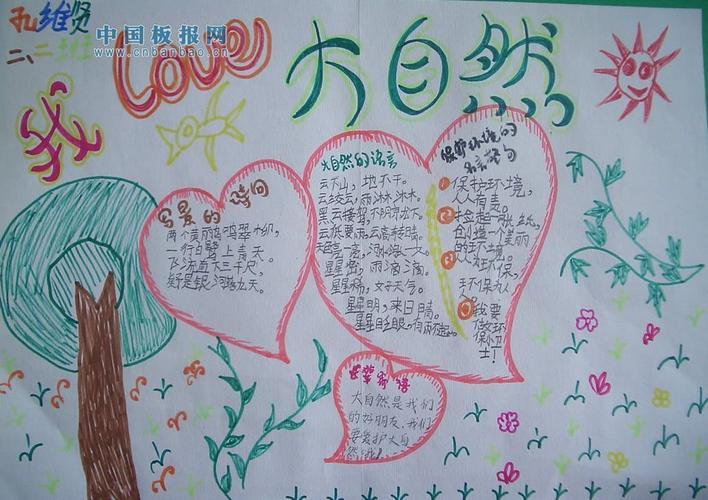 孔维贤
二、二班
中国板报网
www.cnbanbao.cn
我 Love 大自然
写景的诗词
两个黄丽鸟鸣翠柳,
一行白鹭上青天。
飞流直下三千尺,
疑是银河落九天。
大自然的语言
云下山,地不干。
云绞云,雨淋淋。
黑云接驾,不阴就下。
云低要雨,云高转晴。
星星密,雨滴滴。
星星稀,好天气。
星星明,来日晴。
星星眨眼,有雨不起。
保护环境的
名言警句
1 保护环境,
人人有责。
2 捡起一张纸,
创造一个美丽
的环境。
3 人人环保,
环保为
人。
我要
做环
保卫
士!
大自然是我们
的好朋友,我们
要爱护大自